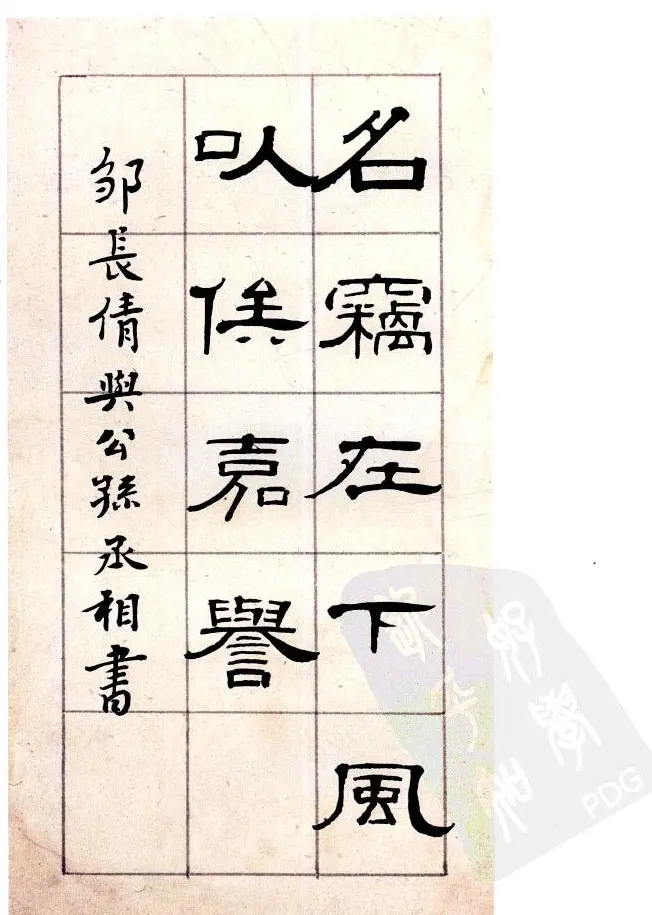 名竊在下風
㕥俟嘉譽
鄒長倩與公孫丞相書
PDG